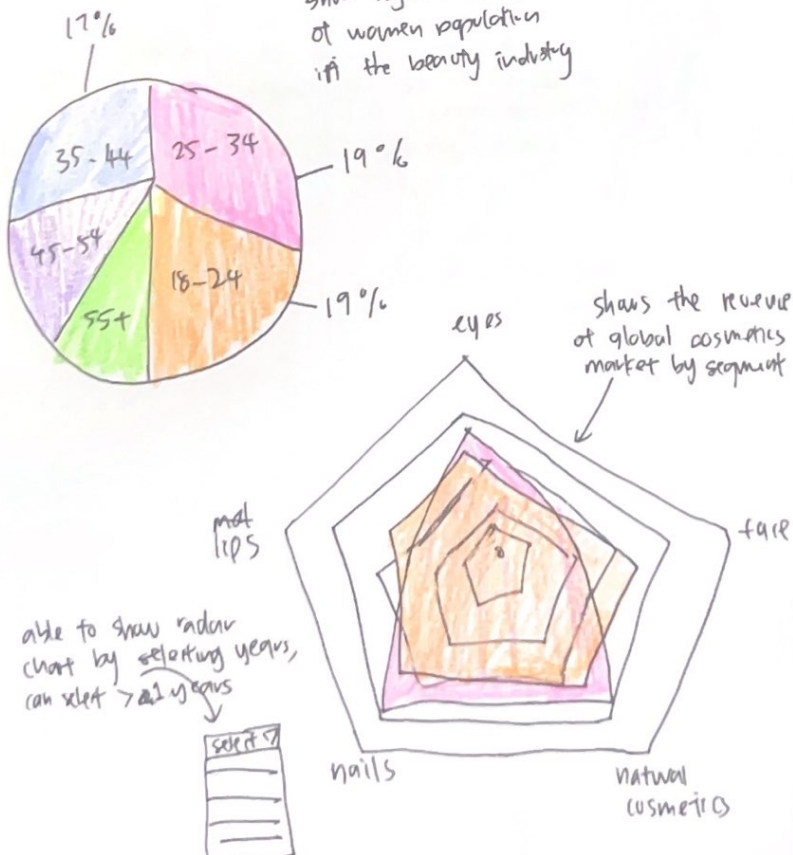 17%
of women population
in the beauty industry
35-44
25-34
19%
45-54
18-24
55+
19%
eyes
shows the revenue
of global cosmetics
market by segment
lips
face
able to show radar
chart by selecting years,
can select > 1 years
select
nails
natural
cosmetics